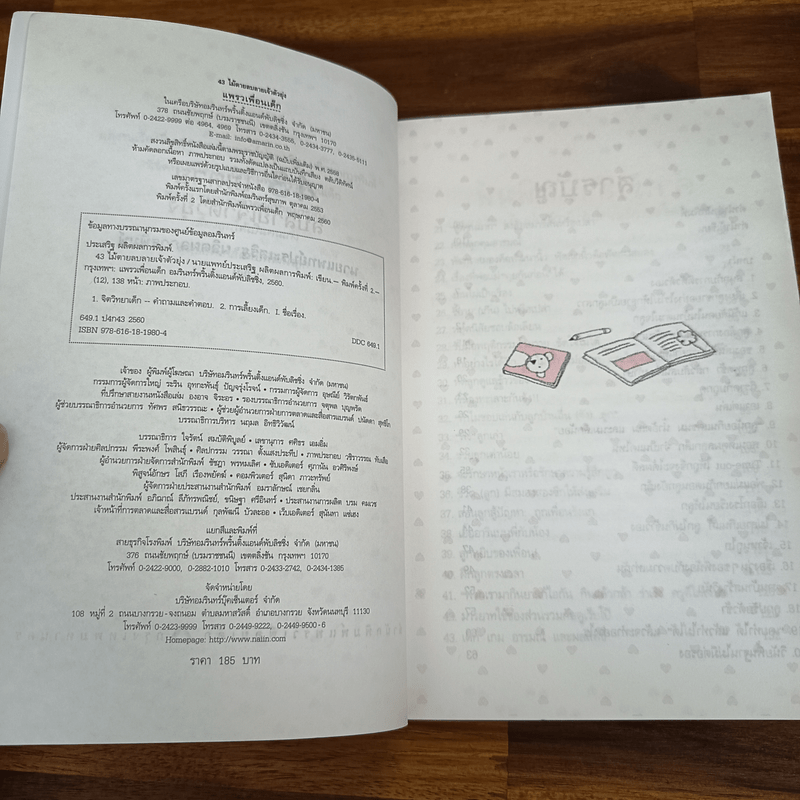 43 ไม้ตายตบลายเจ้าตัวยุ่ง
แพรวเพื่อนเด็ก
ในเครือบริษัทอมรินทร์พริ้นติ้งแอนด์พับลิชชิ่ง จำกัด (มหาชน)
378 ถนนชัยพฤกษ์ (บรมราชชนนี) เขตตลิ่งชัน กรุงเทพฯ 10170
โทรศัพท์ 0-2422-9999 ต่อ 4964, 4969 โทรสาร 0-2434-3555, 0-2434-3777, 0-2435-5111
E-mail: info@amarin.co.th
สงวนลิขสิทธิ์หนังสือเล่มนี้ตามพระราชบัญญัติ (ฉบับเพิ่มเติม) พ.ศ. 2558
ห้ามคัดลอกเนื้อหา ภาพประกอบ รวมทั้งดัดแปลงเป็นแถบบันทึกเสียง ตลับวิดีทัศน์
หรือเผยแพร่ด้วยรูปแบบและวิธีการอื่นใดก่อนได้รับอนุญาต
เลขมาตรฐานสากลประจำหนังสือ 978-616-18-1980-4
พิมพ์ครั้งแรกโดยสำนักพิมพ์อมรินทร์สุขภาพ ตุลาคม 2553
พิมพ์ครั้งที่ 2 โดยสำนักพิมพ์แพรวเพื่อนเด็ก พฤษภาคม 2560
ข้อมูลทางบรรณานุกรมของศูนย์ข้อมูลอมรินทร์
ประเสริฐ ผลิตผลการพิมพ์.
43 ไม้ตายตบลายเจ้าตัวยุ่ง / นายแพทย์ประเสริฐ ผลิตผลการพิมพ์: เขียน.-- พิมพ์ครั้งที่ 2.--
กรุงเทพฯ: แพรวเพื่อนเด็ก อมรินทร์พริ้นติ้งแอนด์พับลิชชิ่ง, 2560.
(12), 138 หน้า: ภาพประกอบ.
1. จิตวิทยาเด็ก -- คำถามและคำตอบ. 2. การเลี้ยงเด็ก. I. ชื่อเรื่อง.
649.1 ป4ก43 2560
DDC 649.1
ISBN 978-616-18-1980-4
เจ้าของ ผู้พิมพ์ผู้โฆษณา บริษัทอมรินทร์พริ้นติ้งแอนด์พับลิชชิ่ง จำกัด (มหาชน)
กรรมการผู้จัดการใหญ่ ระริน อุทกะพันธุ์ ปัญจรุ่งโรจน์ • กรรมการผู้จัดการ อุษณีย์ วิรัตกพันธ์
ที่ปรึกษาสายงานหนังสือเล่ม องอาจ จิระอร • รองบรรณาธิการอำนวยการ จตุพล บุญพรัด
ผู้ช่วยบรรณาธิการอำนวยการ ทัศพร สนิธวรรณะ • ผู้ช่วยผู้อำนวยการฝ่ายการตลาดและสื่อสารแบรนด์ ปนัดดา
บรรณาธิการบริหาร นฤมล อิทธิวิวัฒน์
บรรณาธิการ ใจรัตน์ สมบัติพิบูลย์ • เลขานุการ ศศิธร เอมอิ่ม
ผู้จัดการฝ่ายศิลปกรรม พีระพงศ์ โพสินธุ์ • ศิลปกรรม วรรณา ตั้งแสงประทีป • ภาพประกอบ วชิราวรรณ ทับเสือ
ผู้อำนวยการฝ่ายจัดการสำนักพิมพ์ ชัชฎา พรหมเลิศ • ซับเอดิเตอร์ ศุภานัน อวศิริพงษ์
พิสูจน์อักษร โสภี เรืองพยัคฆ์ • คอมพิวเตอร์ สุนิตา ภาวะทรัพย์
ผู้จัดการฝ่ายประสานงานสำนักพิมพ์ อมราลักษณ์ เชยกลิ่น
ประสานงานสำนักพิมพ์ อภิฌาณ์ ลีภัทรพณิชย์, ชนิษฐา ศรีอินทร์ • ประสานงานการผลิต บรม คมเวช
เจ้าหน้าที่การตลาดและสื่อสารแบรนด์ กุลพัฒนี บัวละออ • เว็บเอดิเตอร์ สุนันทา แซ่เฮง
แยกสีและพิมพ์ที่
สายธุรกิจโรงพิมพ์ บริษัทอมรินทร์พริ้นติ้งแอนด์พับลิชชิ่ง จำกัด (มหาชน)
376 ถนนชัยพฤกษ์ (บรมราชชนนี) เขตตลิ่งชัน กรุงเทพฯ 10170
โทรศัพท์ 0-2422-9000, 0-2882-1010 โทรสาร 0-2433-2742, 0-2434-1385
จัดจำหน่ายโดย
บริษัทอมรินทร์บุ๊คเซ็นเตอร์ จำกัด
108 หมู่ที่ 2 ถนนบางกรวย-จงถนอม ตำบลมหาสวัสดิ์ อำเภอบางกรวย จังหวัดนนทบุรี 11130
โทรศัพท์ 0-2423-9999 โทรสาร 0-2449-9222, 0-2449-9500-6
Homepage: http://www.naiin.com
ราคา 185 บาท